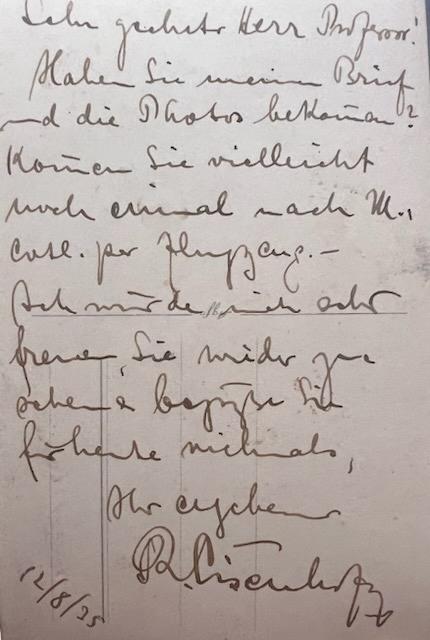 Sehr geehrter Herr Professor!
Haben Sie meinen Brief
und die Photos bekom̄en?
Kom̄en Sie vielleicht
noch einmal nach M.,
per Flugzeug. –
Ich würde mich sehr
freuen, Sie wieder zu
sehen & begrüße Sie
für heute vielmals,
Ihr ergebener
R.
12/8/35